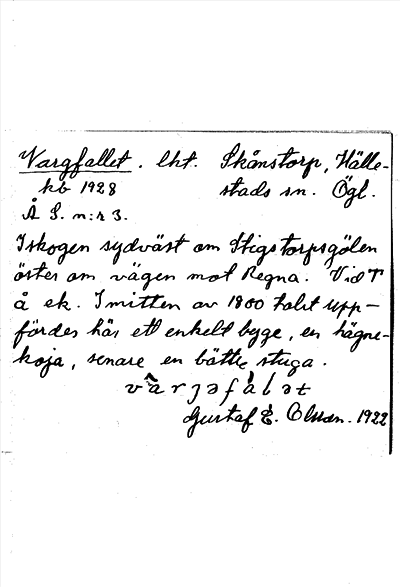 Vargfallet. lht. Skånstorp, Hälle-
kb 1928 stads sn. Ögl.
Å S. n:r 3.
I skogen sydväst om Stigstorpsgölen
öster om vägen mot Regna. Vid T
å ek. I mitten av 1900 talet upp-
fördes här ett enkelt bygge, en hägne-
koja, senare en bättre stuga.
varjəfàlət
Gustaf E. Olsson. 1922